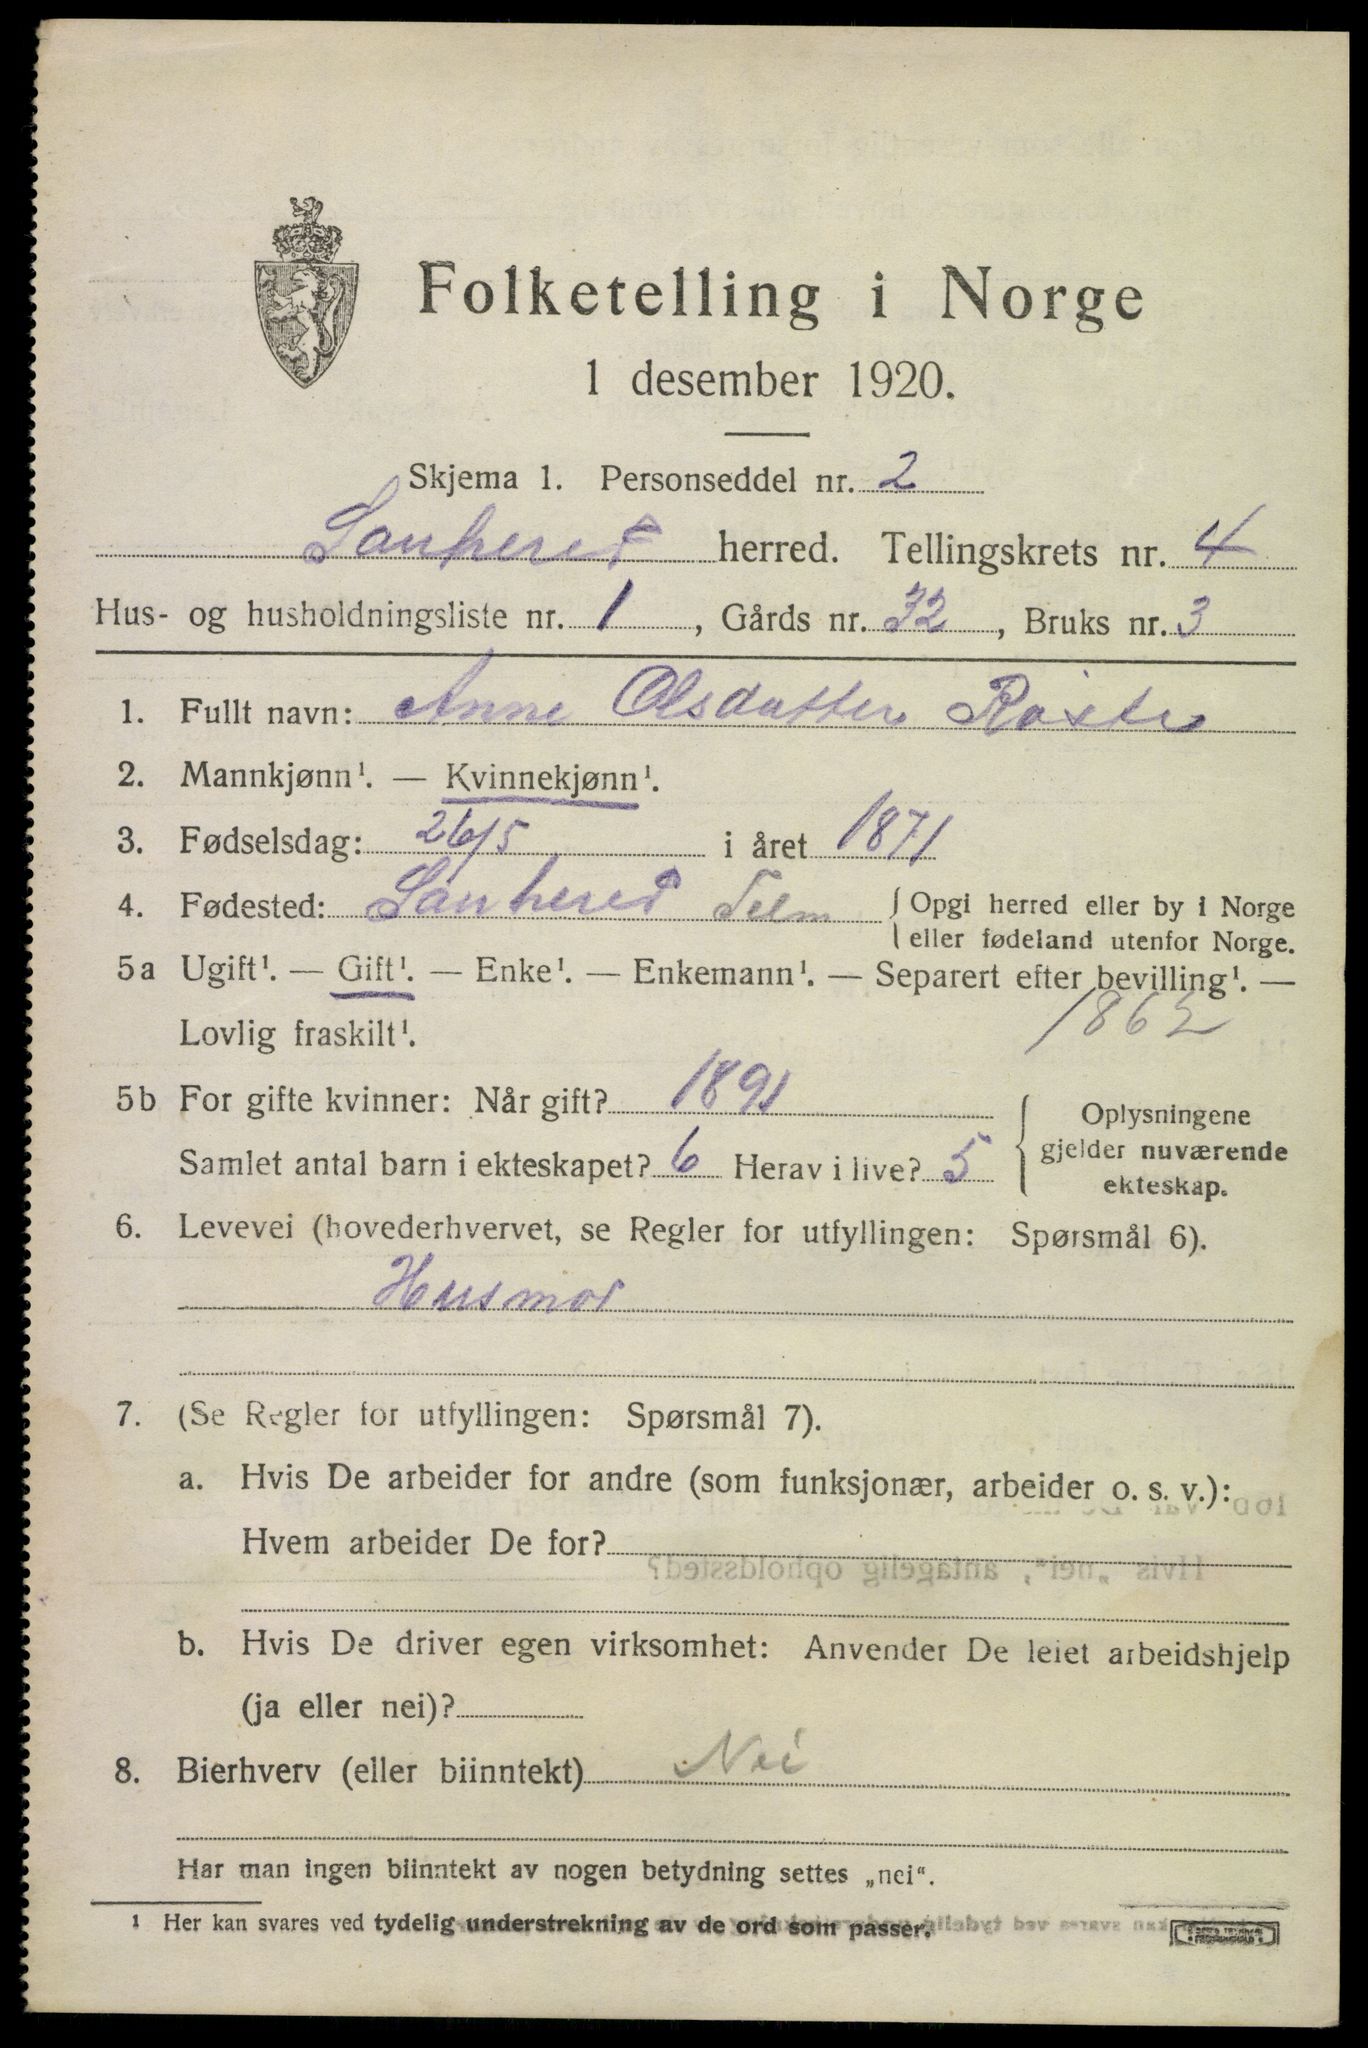 Folketelling i Norge
1 desember 1920.
Skjema 1. Personseddel nr. 2
Sauhered herred. Tellingskrets nr. 4
Hus- og husholdningsliste nr. 1, Gårds nr. 32, Bruks nr. 3
1. Fullt navn: Anne Olsdatter Røste
2. Mannkjønn¹. — Kvinnekjønn¹.
3. Fødselsdag: 26/5 i året 1871
4. Fødested: Sauhered Telm { Opgi herred eller by i Norge
eller fødeland utenfor Norge.
5a Ugift¹. — Gift¹. — Enke¹. — Enkemann¹. — Separert efter bevilling¹. —
Lovlig fraskilt¹. 1862
5b For gifte kvinner: Når gift? 1891
Samlet antal barn i ekteskapet? 6 Herav i live? 5
{ Oplysningene
gjelder nuværende
ekteskap.
6. Levevei (hovederhvervet, se Regler for utfyllingen: Spørsmål 6).
Husmor
7. (Se Regler for utfyllingen: Spørsmål 7).
a. Hvis De arbeider for andre (som funksjonær, arbeider o. s. v.):
Hvem arbeider De for?
b. Hvis De driver egen virksomhet: Anvender De leiet arbeidshjelp
(ja eller nei)?
8. Bierhverv (eller biinntekt) Nei
Har man ingen biinntekt av nogen betydning settes „nei“.
¹ Her kan svares ved tydelig understrekning av de ord som passer.